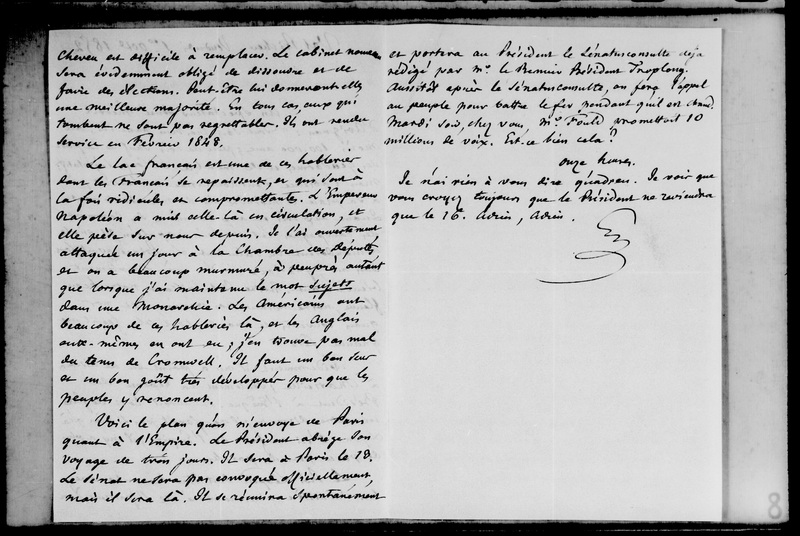 cheveu est difficile à remplacer. Le cabinet nouveau
sera évidemment obligé de dissoudre et de
faire des élections. Peut-être lui donneront-elles
une meilleure majorité. En tous cas, ceux qui
tombent ne sont pas regrettables. Ils ont rendu
service en Février 1848.
Le lac français est une de ces hableries
dont les Français se repaissent, et qui sont à
la fois ridicules et compromettantes. L'Empereur
Napoléon a mis celle-là en circulation, et
elle pèse sur nous depuis. Je l'ai ouvertement
attaquée un jour à la Chambre des Députés,
et on a beaucoup murmuré, à peu près autant
que lorsque j'ai maintenu le mot sujets
dans une Monarchie. Les Américains ont
beaucoup de ces hableries là, et les Anglais
eux-mêmes en ont eu ; j'en trouve pas mal
du tems de Cromwell. Il faut un bon sens
et un bon goût très développés pour que les
peuples y renoncent.
Voici le plan qu'on m'envoye de Paris
quant à l'Empire. Le Président abrège son
voyage de trois jours. Il sera à Paris le 13.
Le Sénat ne sera pas convoqué officiellement,
mais il sera là. Il se réunira spontanément
et portera au Président le Sénatusconsulte déjà
rédigé par Mr. le Premier Président Troplong.
Aussitôt après le Sénatusconsulte, on fera l'appel
au peuple pour battre le fer pendant qu'il est chaud.
Mardi soir, chez vous, Mr. Fould promettoit 10
millions de voix. Est-ce bien cela ?
onze heures.
Je n'ai rien à vous dire qu'adieu. Je vois que
vous croyez toujours que le Président ne reviendra
que le 16. Adieu, Adieu.
8